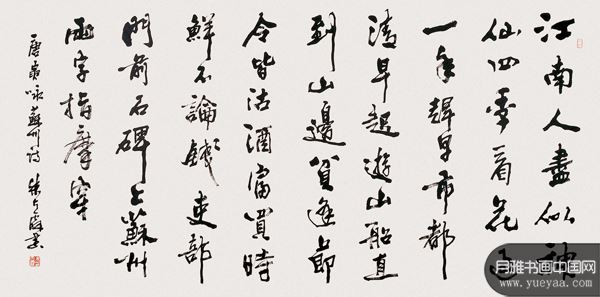 江南人盡似神
仙四季看花過
一年趕早市都
清早起遊山船直
到山邊貧逢節
令皆沽酒富買時
鮮不論錢吏部
門前石碑上蘇州
兩字指摩穿
唐寅咏蘇州詩 書
月雅书画中国网
www.yueyaa.com